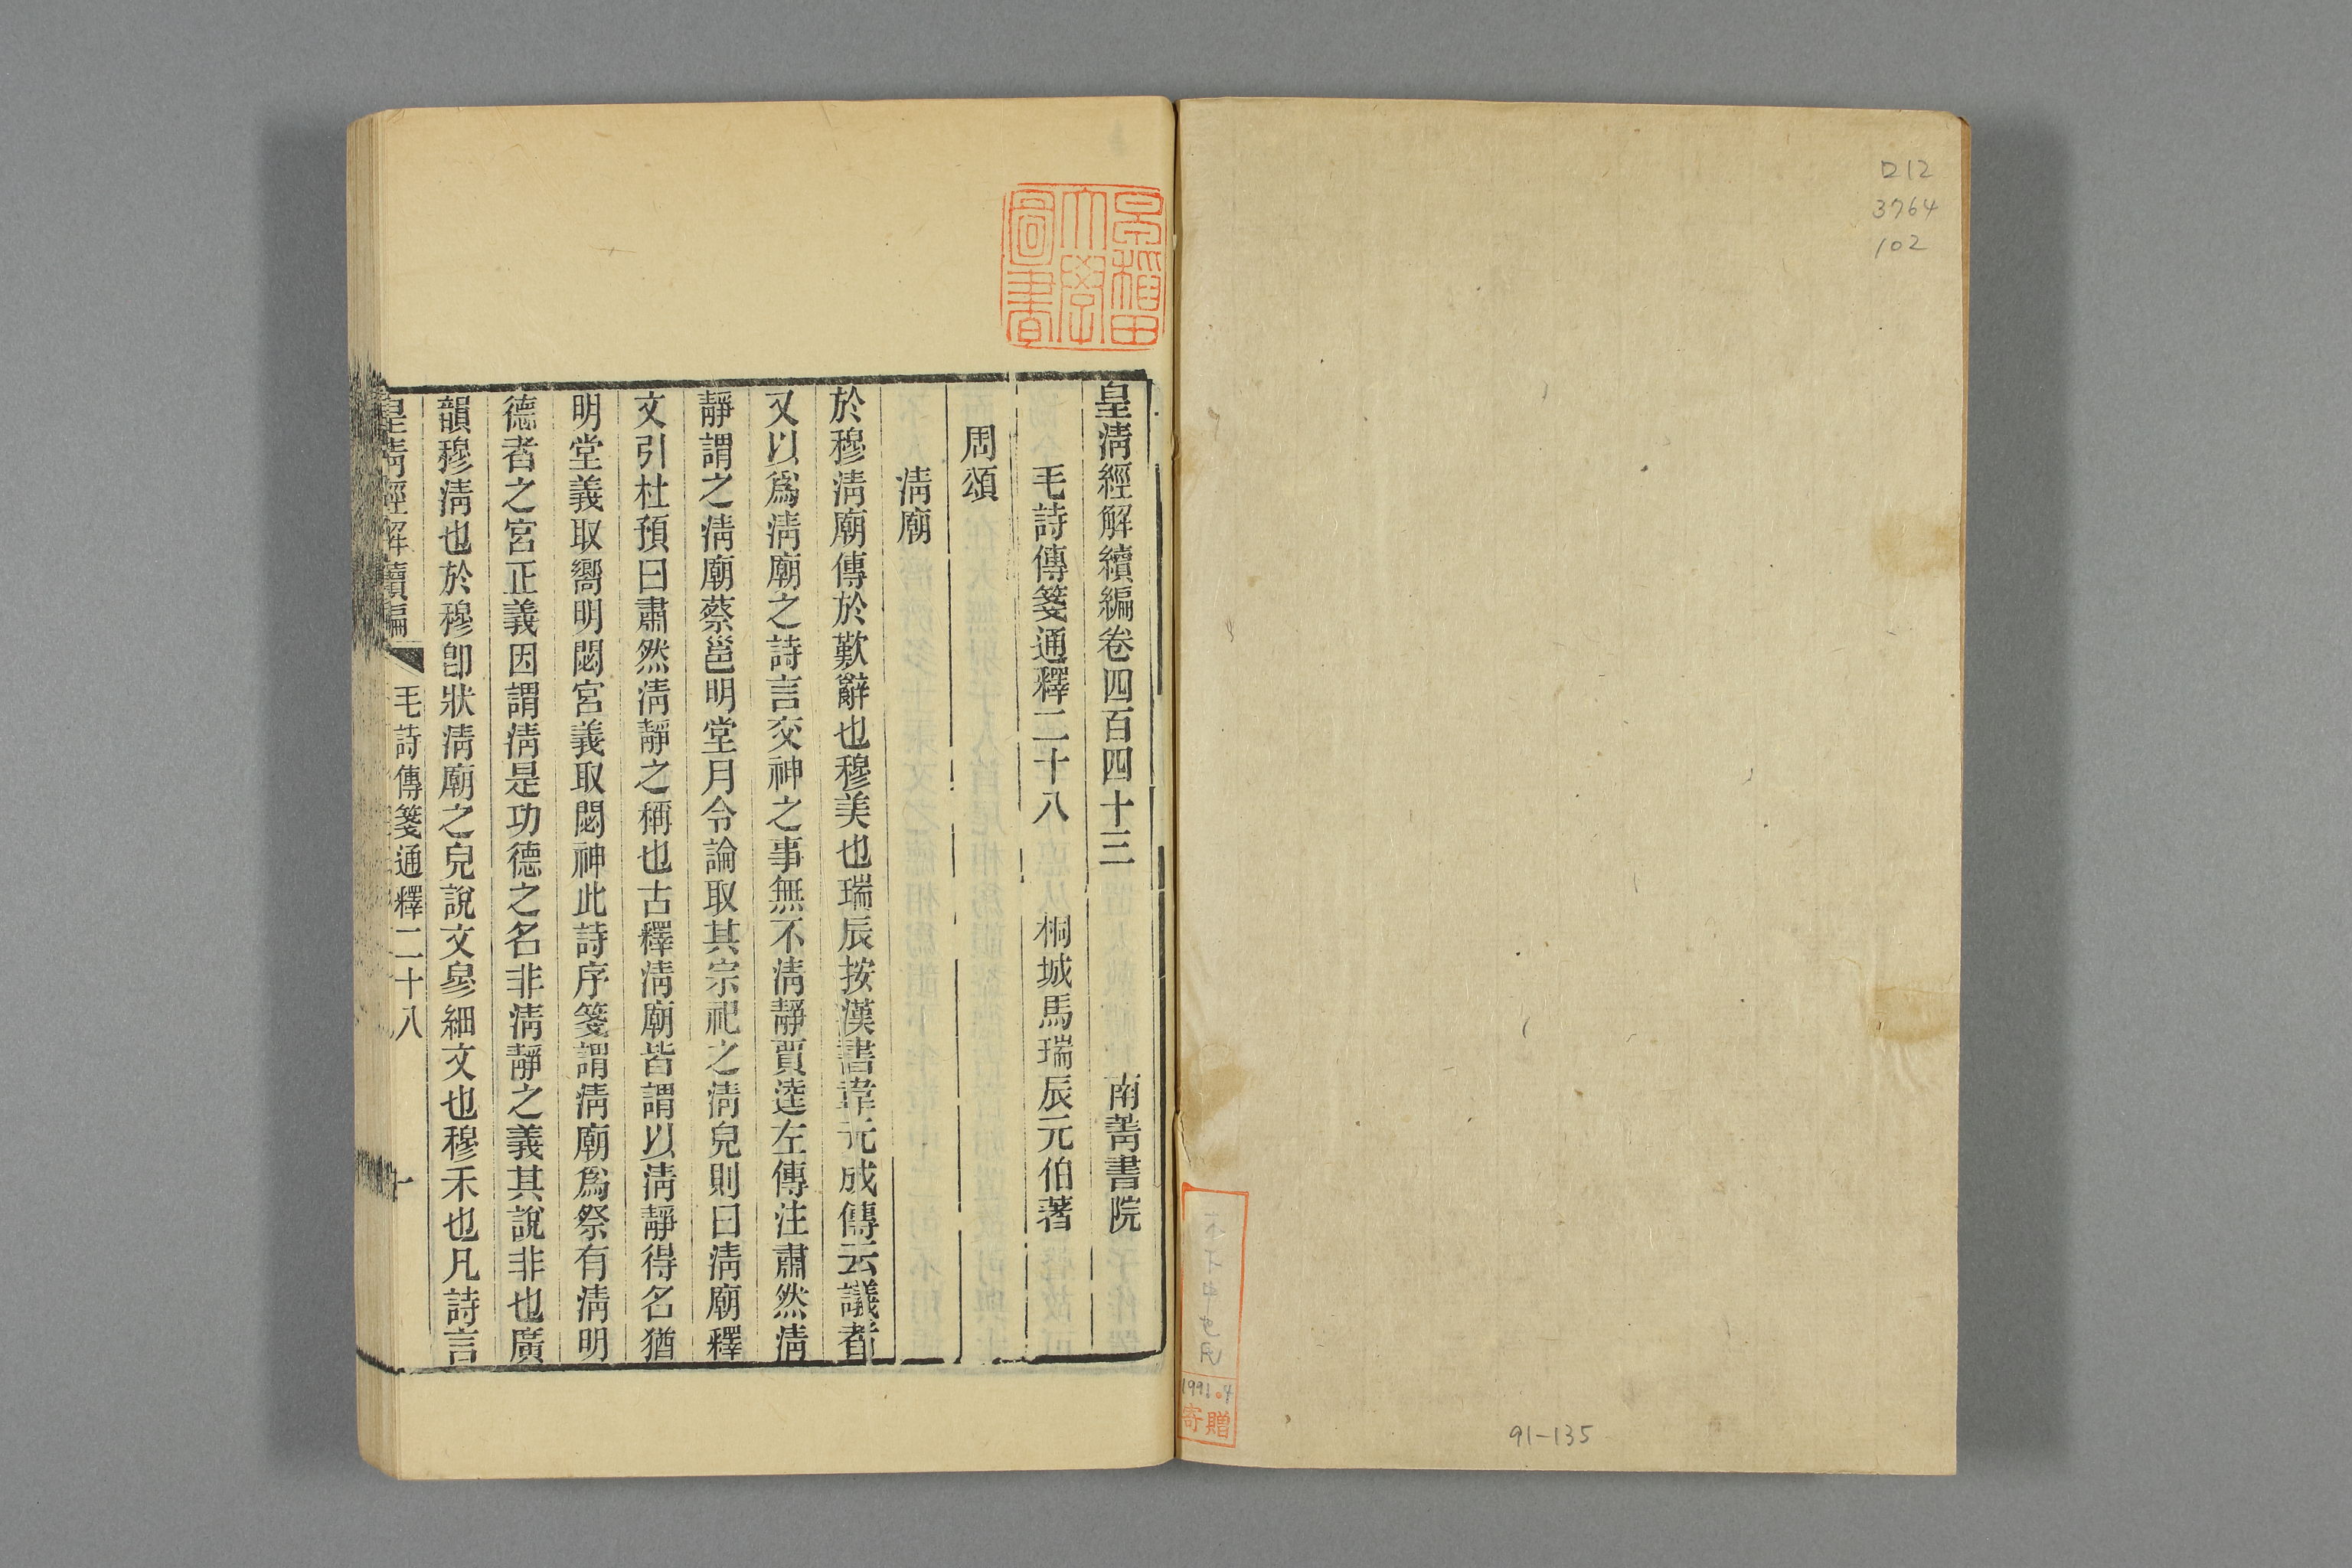 ロ12
3764
102
91-135
木下
1991.7
寄贈
早稲田大學圖書
皇清經解續編卷四百四十三 南菁書院
毛詩傳箋通釋二十八 桐城馬瑞辰元伯著
周頌
清廟
於穆淸廟傳於歎辭也穆美也瑞辰按漢書韋元成傳云議者
又以爲淸廟之詩言交神之事無不淸靜賈逵左傳注肅然淸
靜謂之淸廟蔡邕明堂月令論取其宗祀之淸皃則曰淸廟釋
文引杜預曰肅然淸靜之稱也古釋淸廟皆謂以淸靜得名猶
明堂義取嚮明閟宮義取閟神此詩序箋謂淸廟爲祭有淸明
德者之宮正義因謂淸是功德之名非淸靜之義其說非也廣
韻穆淸也於穆卽狀淸廟之皃說文㣎細文也穆禾也凡詩言
皇淸經解續編 毛詩傳箋通釋二十八 一